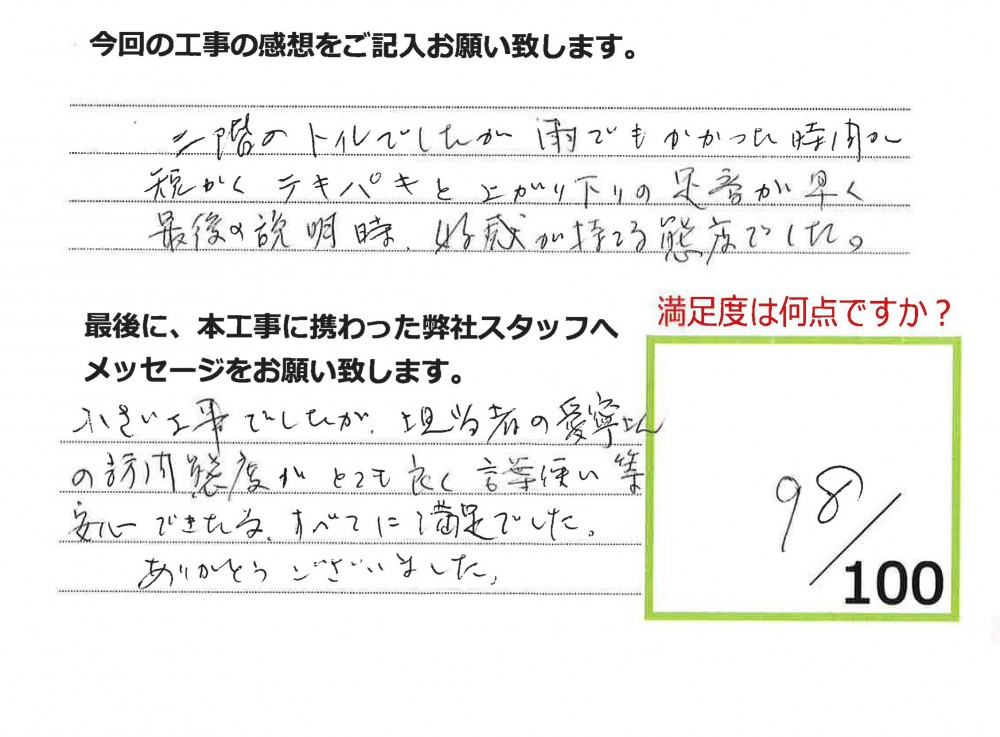 今回の工事の感想をご記入お願い致します。
二階のトイレでしたが 雨でもかかった時間が
短かく テキパキと上がり下りの足音が早く
最後の説明時、好感が持てる態度でした。
満足度は何点ですか？
最後に、本工事に携わった弊社スタッフへ
メッセージをお願い致します。
小さい工事でしたが、担当者の愛寧さん
の訪問態度がとても良く 言葉使い等
安心できたな、すべてに満足でした。
ありがとうございました。
98/100